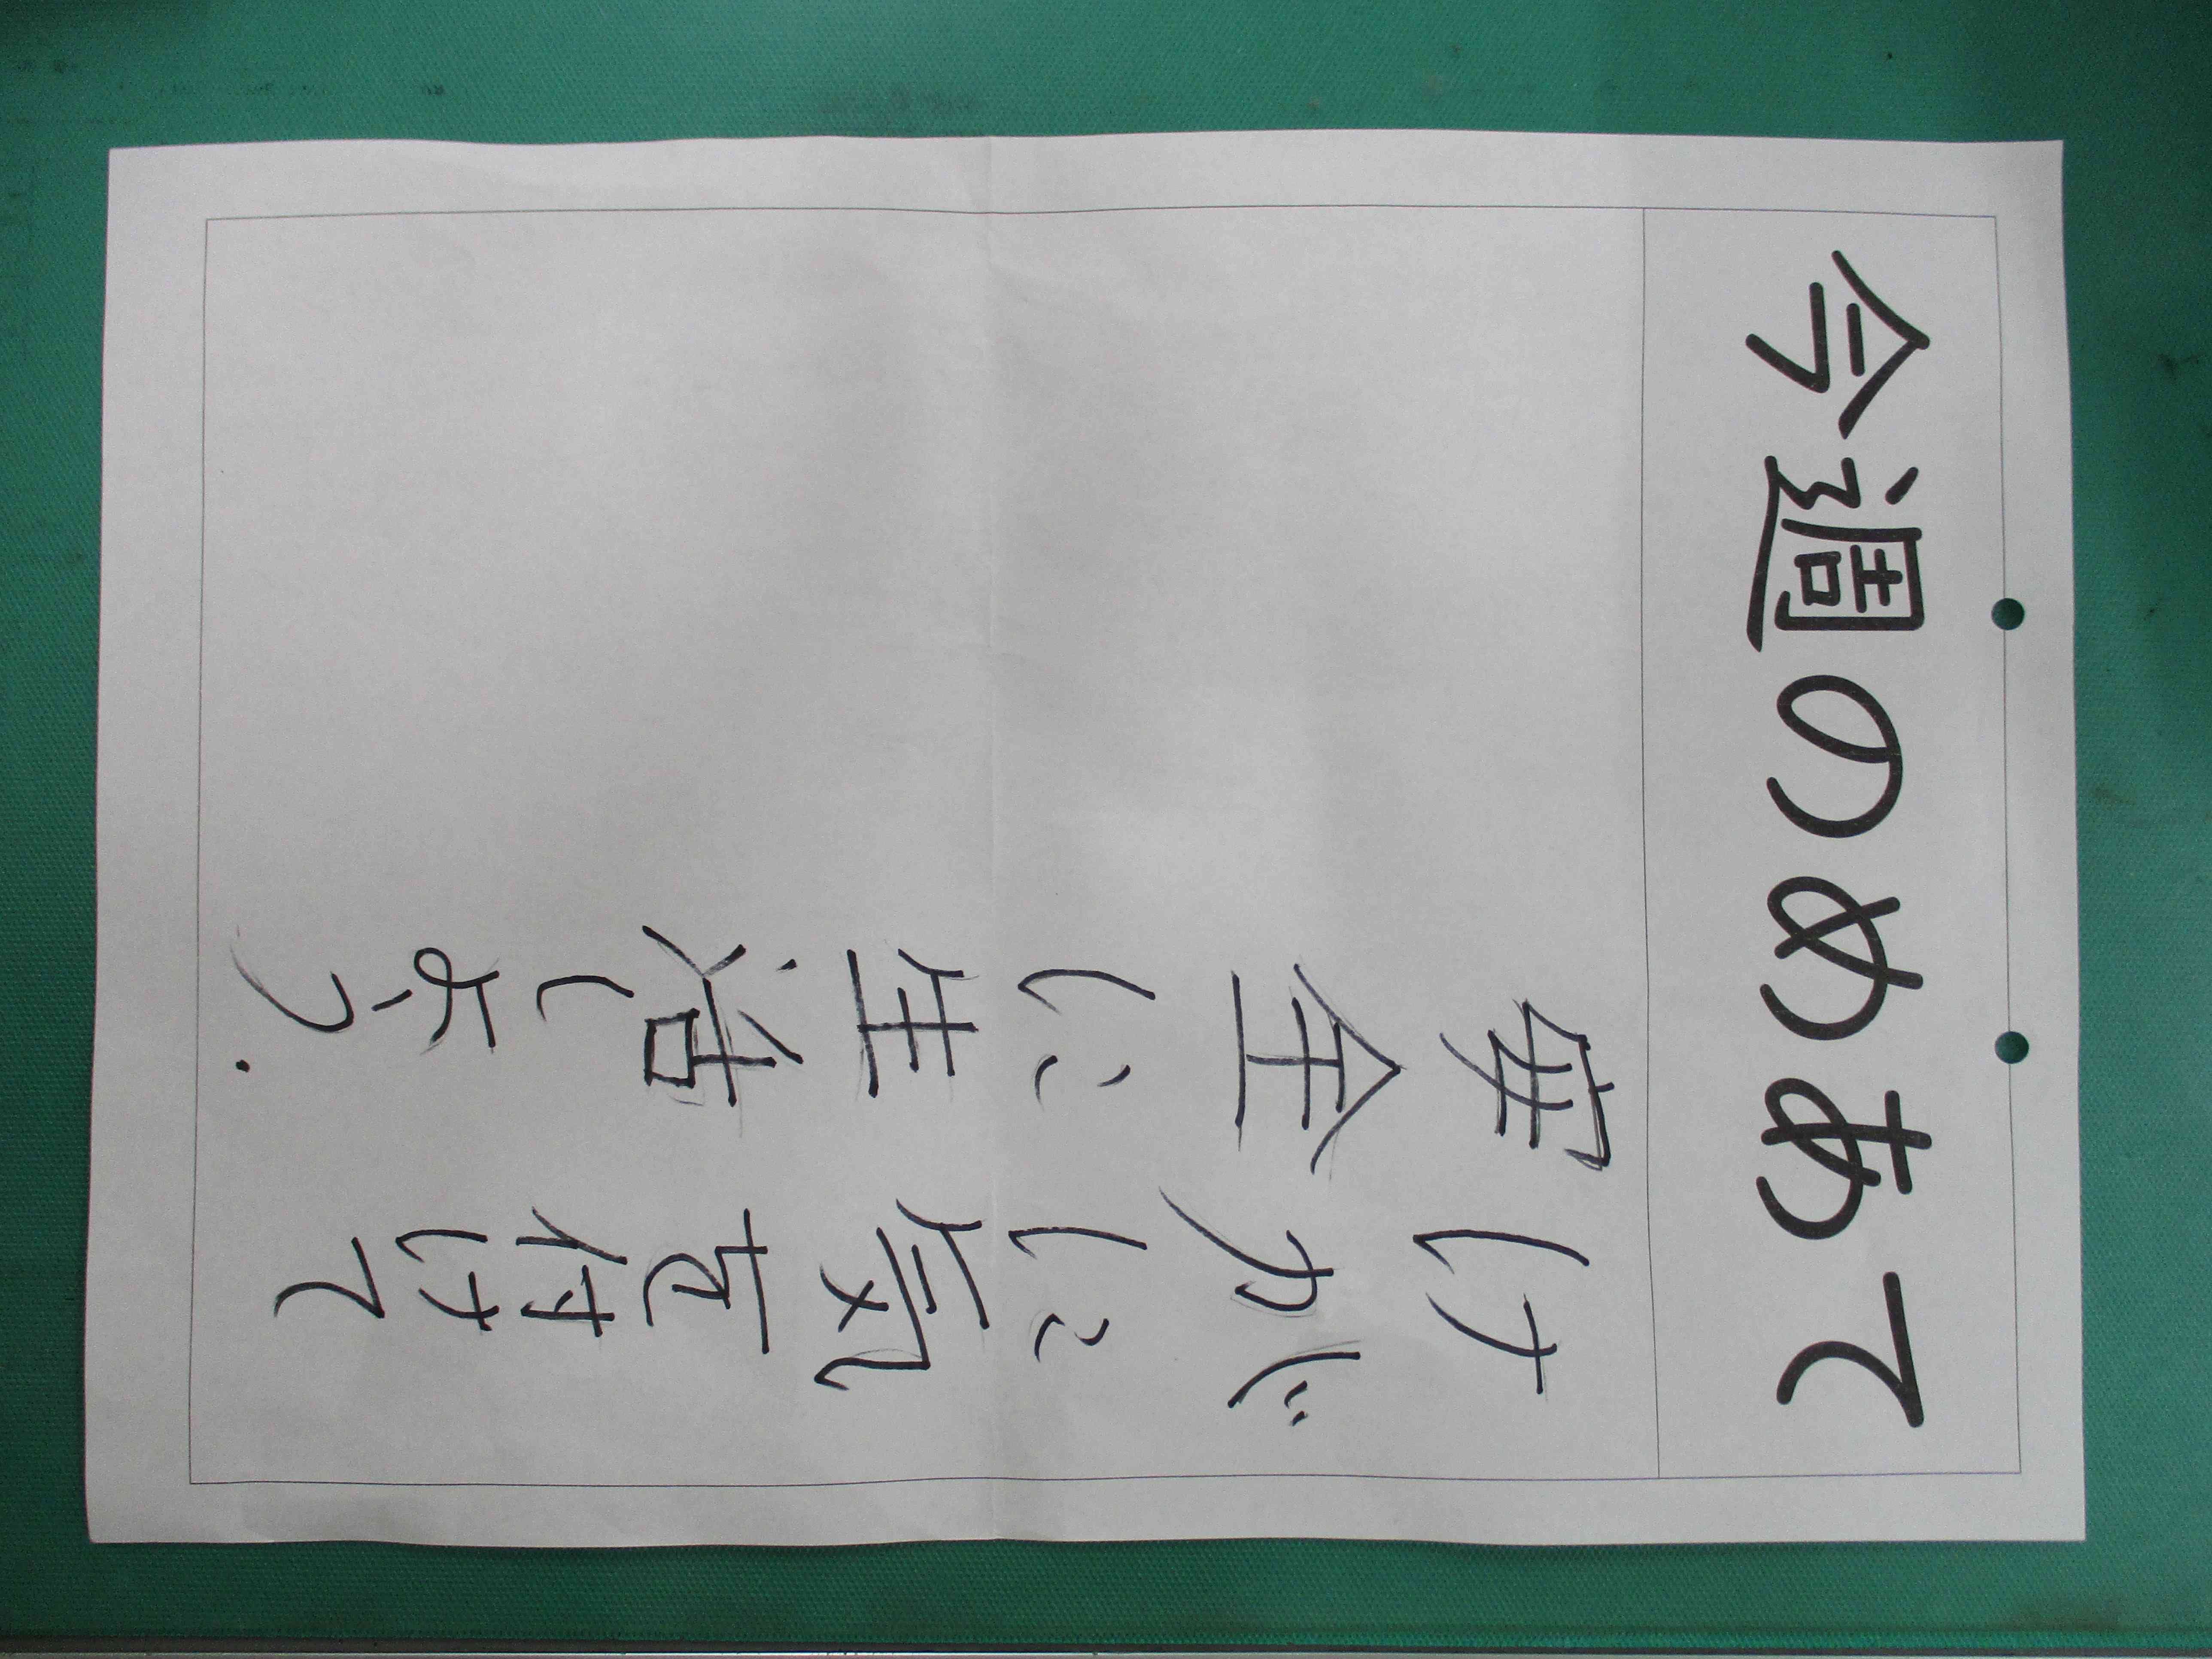 今週のめあて
けがに気を付けて
安全に生活しよう.